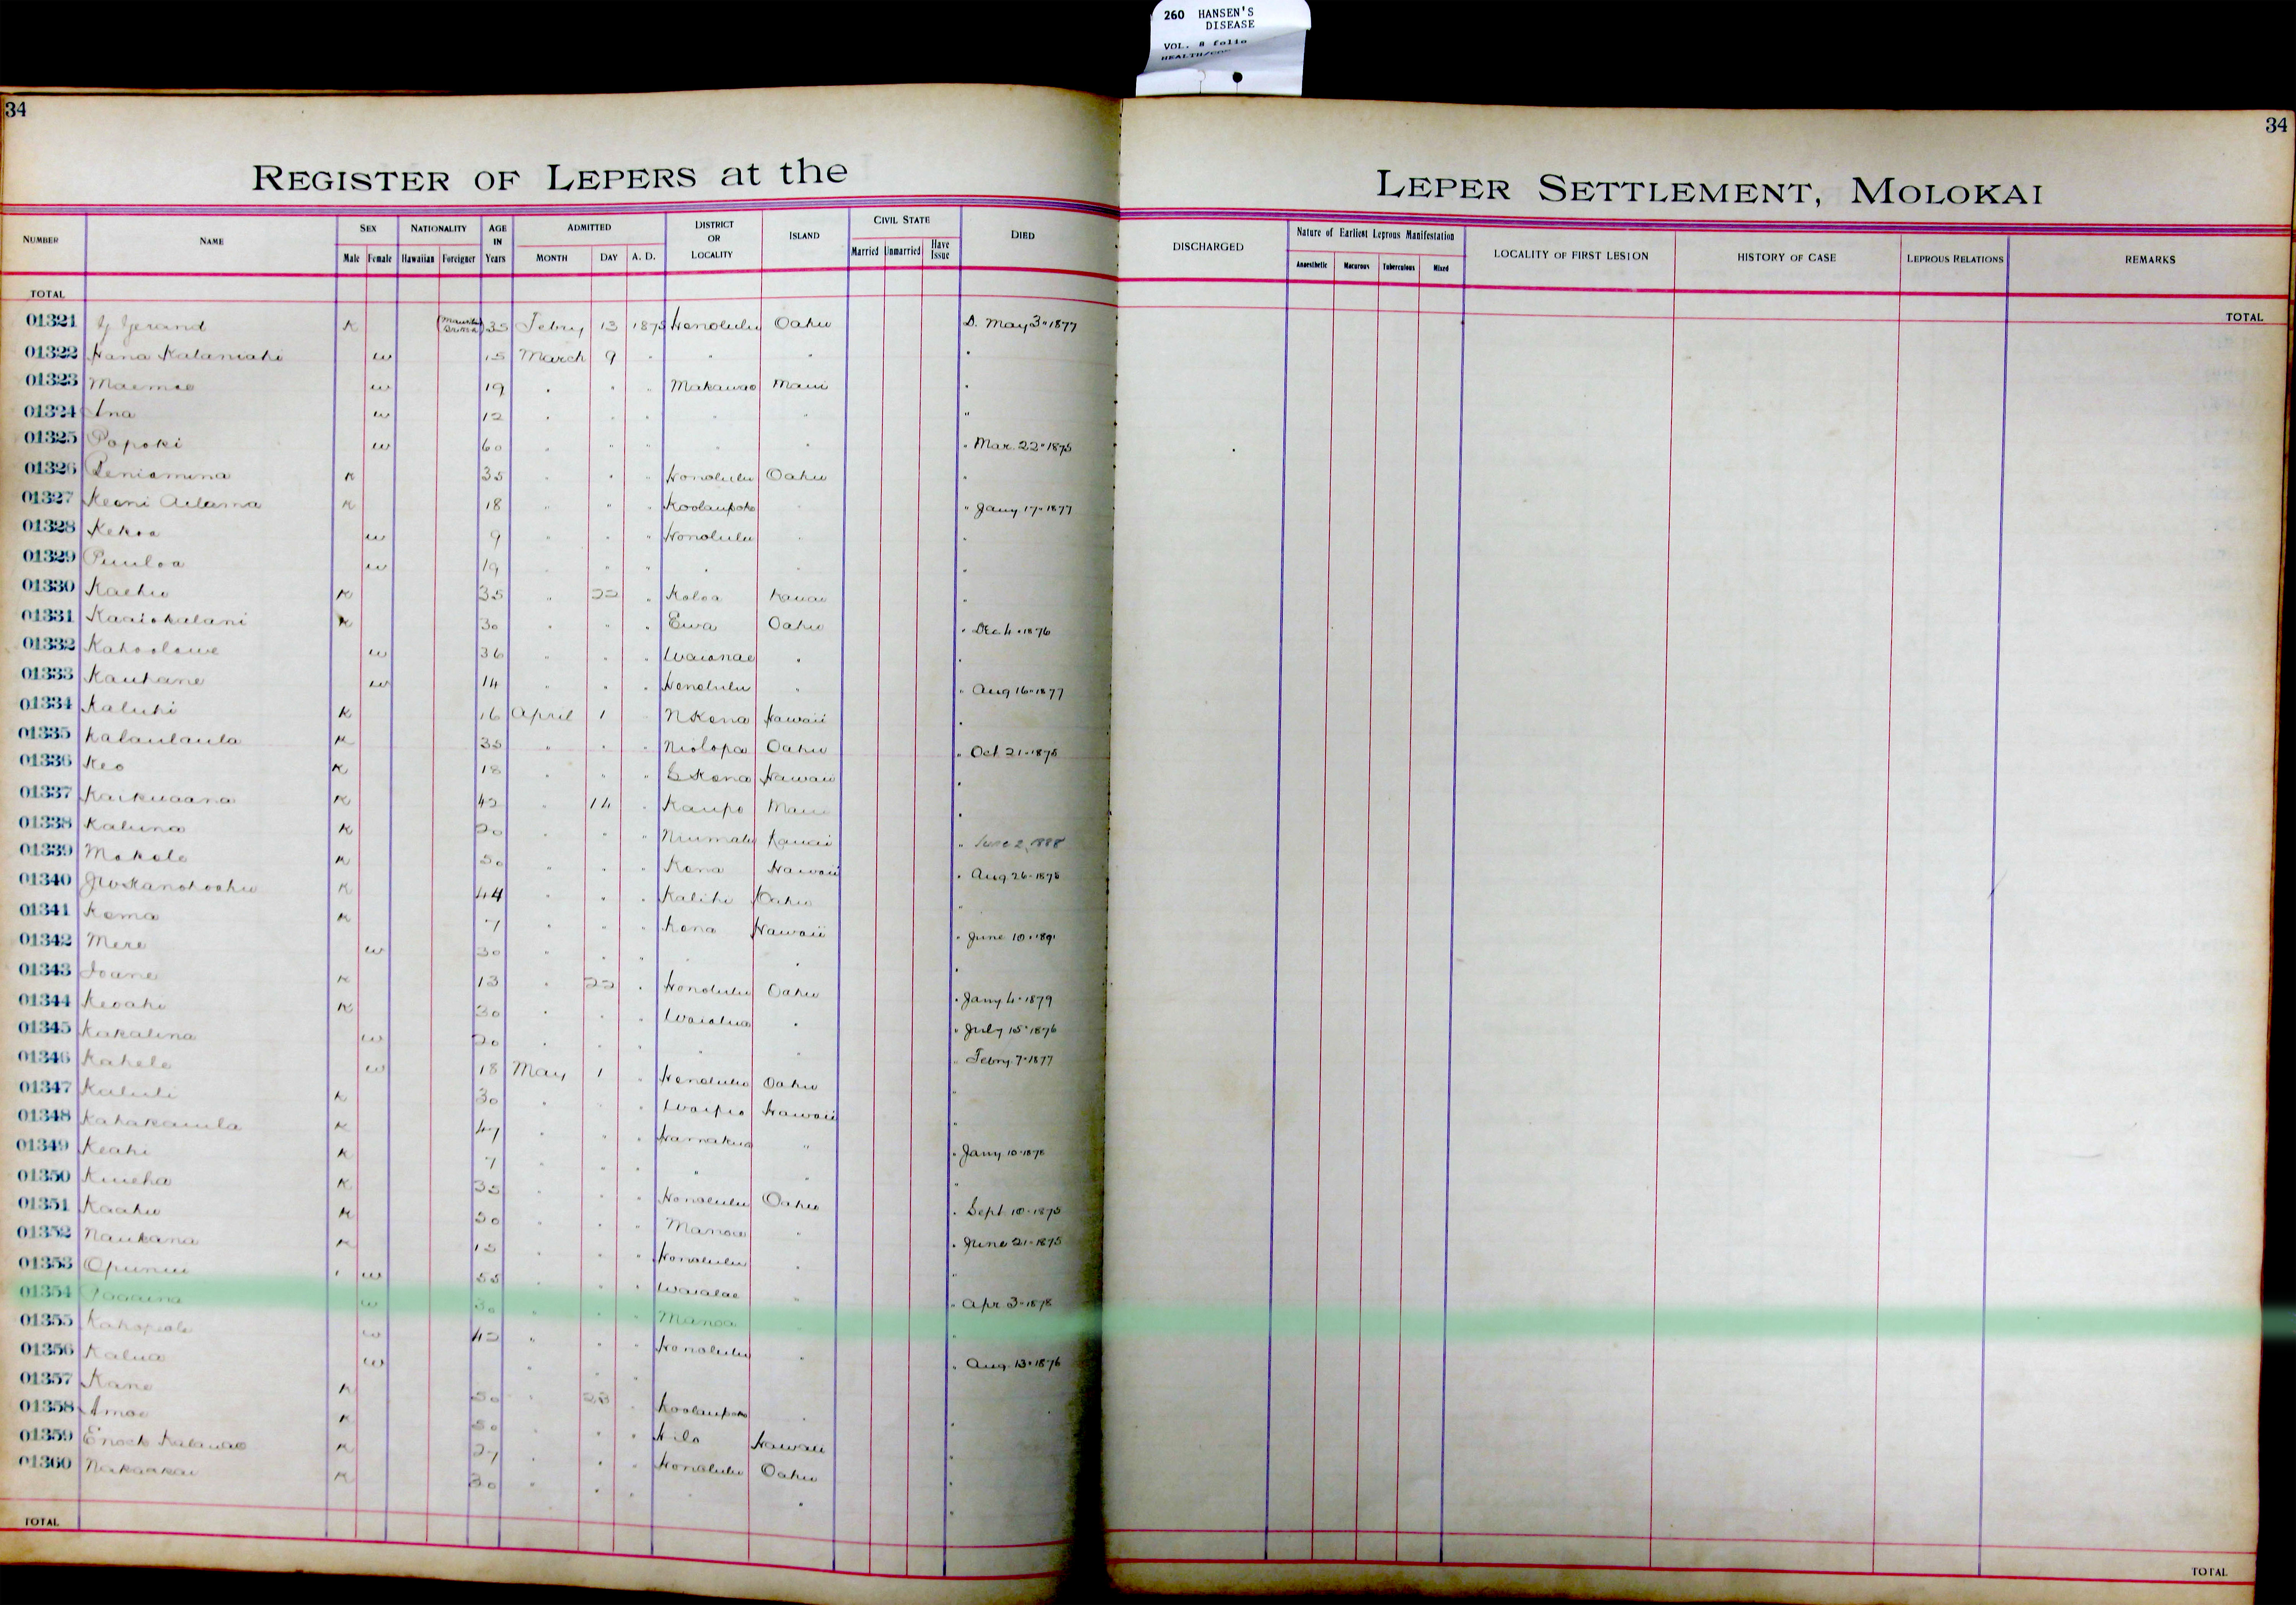 260 HANSEN'S
DISEASE
VOL. 8 folio
34
34
REGISTER OF LEPERS at the LEPER SETTLEMENT, MOLOKAI
NUMBER NAME SEX NATIONALITY AGE IN Years ADMITTED DISTRICT OR LOCALITY ISLAND CIVIL STATE DIED DISCHARGED Nature of Earliest Leprous Manifestation LOCALITY OF FIRST LESION HISTORY OF CASE LEPROUS RELATIONS REMARKS
Male Female Hawaiian Foreigner MONTH DAY A. D. Married Unmarried Have Issue Anaesthetic Macurous Tuberculous Mixed
TOTAL TOTAL
01321 Gerand K 35 Febry 13 1875 Honolulu Oahu D. May 3" 1877
01322 Hana Kalaniahi w 15 March 9 " " " "
01323 Maemae w 19 " " " Makawao Maui "
01324 Ina w 12 " " " " " "
01325 Popoki w 60 " " " " " " Mar. 22" 1875
01326 Peniamina K 35 " " " Honolulu Oahu "
01327 Keoni Adama K 18 " " " Koolaupoko " " Jany 17" 1877
01328 Kekoa w 9 " " " Honolulu " "
01329 Puuloa w 19 " " " " " "
01330 Kaehu K 35 " 22 " Koloa Kauai "
01331 Kaaiokalani K 30 " " " Ewa Oahu " Dec 4" 1876
01332 Kahoolawe w 36 " " " Waianae " "
01333 Kauhane w 14 " " " Honolulu " " Aug 16" 1877
01334 Kaluhi K 16 April 1 " N Kona Hawaii "
01335 Kalaulaula K 35 " " " Niolopa Oahu " Oct 21" 1875
01336 Keo K 18 " " " S Kona Hawaii "
01337 Kaikuaana K 42 " 14 " Kaupo Maui "
01338 Kaluna K 20 " " " Niumalu Kauai " June 2, 1888
01339 Makole K 50 " " " Kona Hawaii " Aug 26" 1878
01340 K 44 " " " Kalihi Oahu "
01341 Kema K 7 " " " Kona Hawaii " June 10" 1891
01342 Mere w 30 " " " " " "
01343 Ioane K 13 " 22 " Honolulu Oahu " Jany 4" 1879
01344 Keoahi K 30 " " " Waialua " " July 15" 1876
01345 Kakalina w 20 " " " " " " Febry 7" 1877
01346 Kahele w 18 May 1 " Honolulu Oahu "
01347 Kaluli K 30 " " " Waipio Hawaii "
01348 Kahakauila K 47 " " " Hamakua " " Jany 10" 1878
01349 Keahi K 7 " " " " " "
01350 Kuieha K 35 " " " Honolulu Oahu " Sept 10" 1875
01351 Kaahu K 50 " " " Manoa " " June 21" 1875
01352 Naukana K 15 " " " Honolulu " "
01353 Opunui w 55 " " " Waialae " " Apr 3" 1878
01354 w 30 " " " Manoa " "
01355 w 42 " " " Honolulu " " Aug. 13" 1876
01356 Kalua w " " "
01357 Kane K 50 " 28 " Koolaupoko " "
01358 Amoe K 50 " " " Hilo Hawaii "
01359 Enoch Kalauao K 27 " " " Honolulu Oahu "
01360 Nakaakai K 30 " " " " " "
TOTAL TOTAL